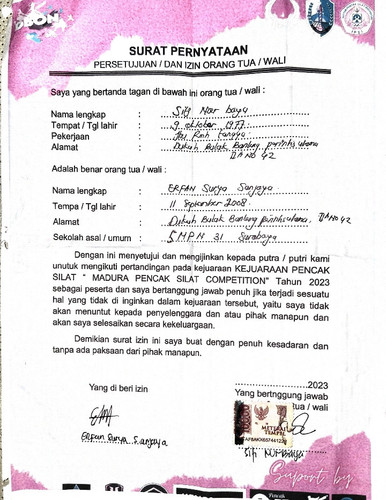 SURAT PERNYATAAN
PERSETUJUAN / DAN IZIN ORANG TUA / WALI
Saya yang bertanda tangan di bawah ini orang tua / wali :
Nama lengkap : Siti Nur baya
Tempat / Tgl lahir : 9 oktober 1977
Pekerjaan : Ibu Rmh Tangga
Alamat : Dukuh Bulak Banteng perintis utama II A NO 42
Adalah benar orang tua / wali :
Nama lengkap : ERFAN Surya Sanjaya
Tempa / Tgl lahir : 11 September 2008
Alamat : Dukuh Bulak Banteng perintis utama, II A NO 42
Sekolah asal / umum : SMPN 31 Surabaya
Dengan ini menyetujui dan mengijinkan kepada putra / putri kami
unutuk mengikuti pertandingan pada kejuaraan KEJUARAAN PENCAK
SILAT " MADURA PENCAK SILAT COMPETITION" Tahun 2023
sebagai peserta dan saya bertanggung jawab penuh jika terjadi sesuatu
hal yang tidak di inginkan dalam kejuaraan tersebut, yaitu saya tidak
akan menuntut kepada penyelenggara dan atau pihak manapun dan
akan saya selesaikan secara kekeluargaan.
Demikian surat izin ini saya buat dengan penuh kesadaran dan
tanpa ada paksaan dari pihak manapun.
..............................2023
Yang di beri izin
Yang bertnggung jawab
tua / wali
METERAI
TEMPEL
Erfan Surya Sanjaya
Siti Nurbaya
Suport by